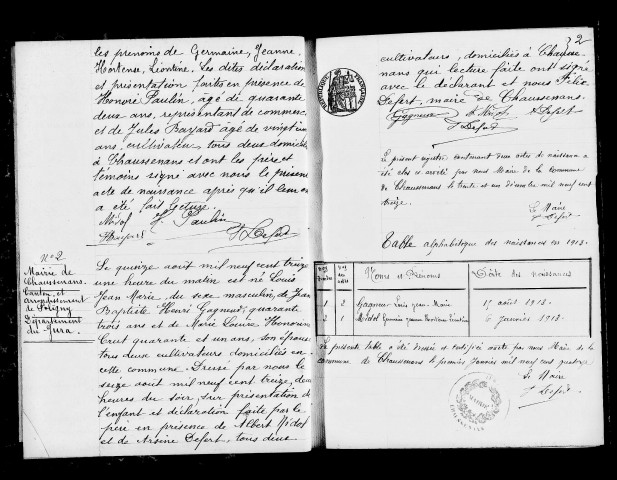 les prénoms de Germaine, Jeanne,
Hortense, Léontine. Les dites déclaration
et présentation faites en présence de
Honoré Paulin, âgé de quarante
deux ans, représentant de commerce
et de Jules Bayard âgé de vingt
ans, cultivateur, tous deux domiciliés
à Chaussenans et ont les père et
témoins signé avec nous le présent
acte de naissance après qu'il leur en
a été fait lecture.
H. Paulin
J. Defert
N° 2
Mairie de
Chaussenans.
Canton et
arrondissement
de Poligny
Département
du Jura.
Le quinze août mil neuf cent treize
une heure du matin est né Louis
Jean Marie, du sexe masculin, de Jean
Baptiste Henri Gagneur, quarante
trois ans et de Marie Louise Honorine
Cret quarante et un ans, son épouse
tous deux cultivateurs domiciliés en
cette commune. Dressé par nous le
seize août mil neuf cent treize, deux
heures du soir, sur présentation de
l'enfant et déclaration faite par le
père en présence de Albert Nidol
et de Arsène Defert, tous deux
2
cultivateurs, domiciliés à Chausse-
nans qui lecture faite ont signé
avec le déclarant et nous
Defert, maire de Chaussenans.
Gagneur A. Defert
J. Defert
REPUBLIQUE FRANÇAISE
Le présent registre contenant deux actes de naissance a
été clos et arrêté par nous Maire de la commune
de Chaussenans le trente et un décembre mil neuf cent
treize.
Le Maire
J. Defert
Table alphabétique des naissances en 1913.
Nos Nos des actes Noms et Prénoms Date des naissances
1 2 Gagneur Louis Jean-Marie 15 août 1913.
2 1 Germaine Jeanne Hortense Léontine janvier 1913.
La présente table a été dressée et certifiée exacte par nous Maire de la
commune de Chaussenans le premier Janvier mil neuf cent quatorze
Le Maire
J. Defert
MAIRIE